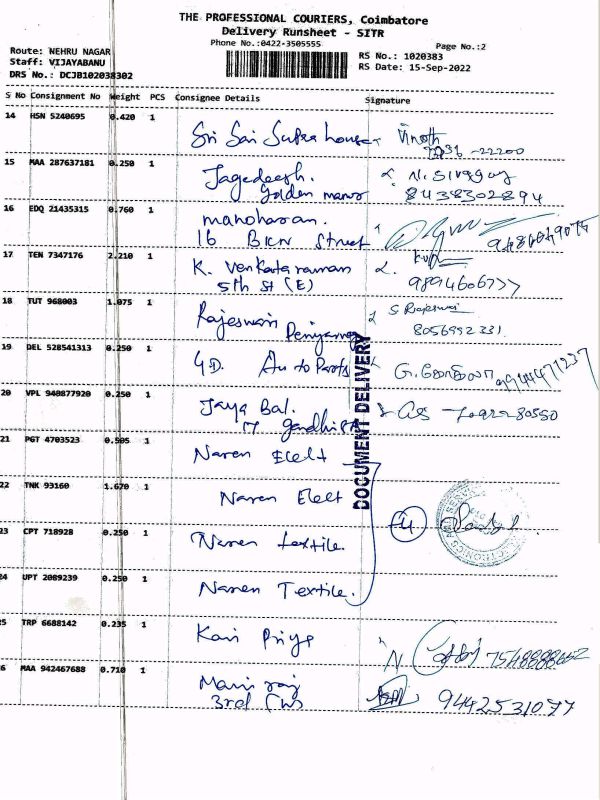 THE PROFESSIONAL COURIERS, Coimbatore
Delivery Runsheet - SITR
Phone No.:0422-3505555
Page No.:2
Route: NEHRU NAGAR
Staff: VIJAYABANU
DRS No.: DCJB102038302
RS No.: 1020383
RS Date: 15-Sep-2022
S No Consignment No Weight PCS Consignee Details Signature
14 HSN 5240695 0.420 1 Sri Sai Supra house Vinoth
15 MAA 287637181 0.250 1 Jagedeesh. N. Sivaguy
Golden manor 8438302894
16 EDQ 21435315 0.760 1 manoharan.
16 BKN Street
17 TEN 7347176 2.210 1 K. Venkataraman
5th St (E) 9894606777
18 TUT 968003 1.075 1 Rajeswari Periyanay S Rajeswari
8056992331.
19 DEL 528541313 0.250 1 G.D. Auto Parts 9944471237
20 VPL 940877920 0.250 1 Jaya Bal.
17 gandhi
DOCUMENT DELIVERY
21 PGT 4703523 0.505 1 Naren Elelt
22 TNK 93160 1.670 1 Naren Elelt
23 CPT 718928 0.250 1 Naren textile.
24 UPT 2089239 0.250 1 Naren Textile.
25 TRP 6688142 0.235 1 Kavi Priya
26 MAA 942467688 0.710 1 Mani raj 9442531077
3rd